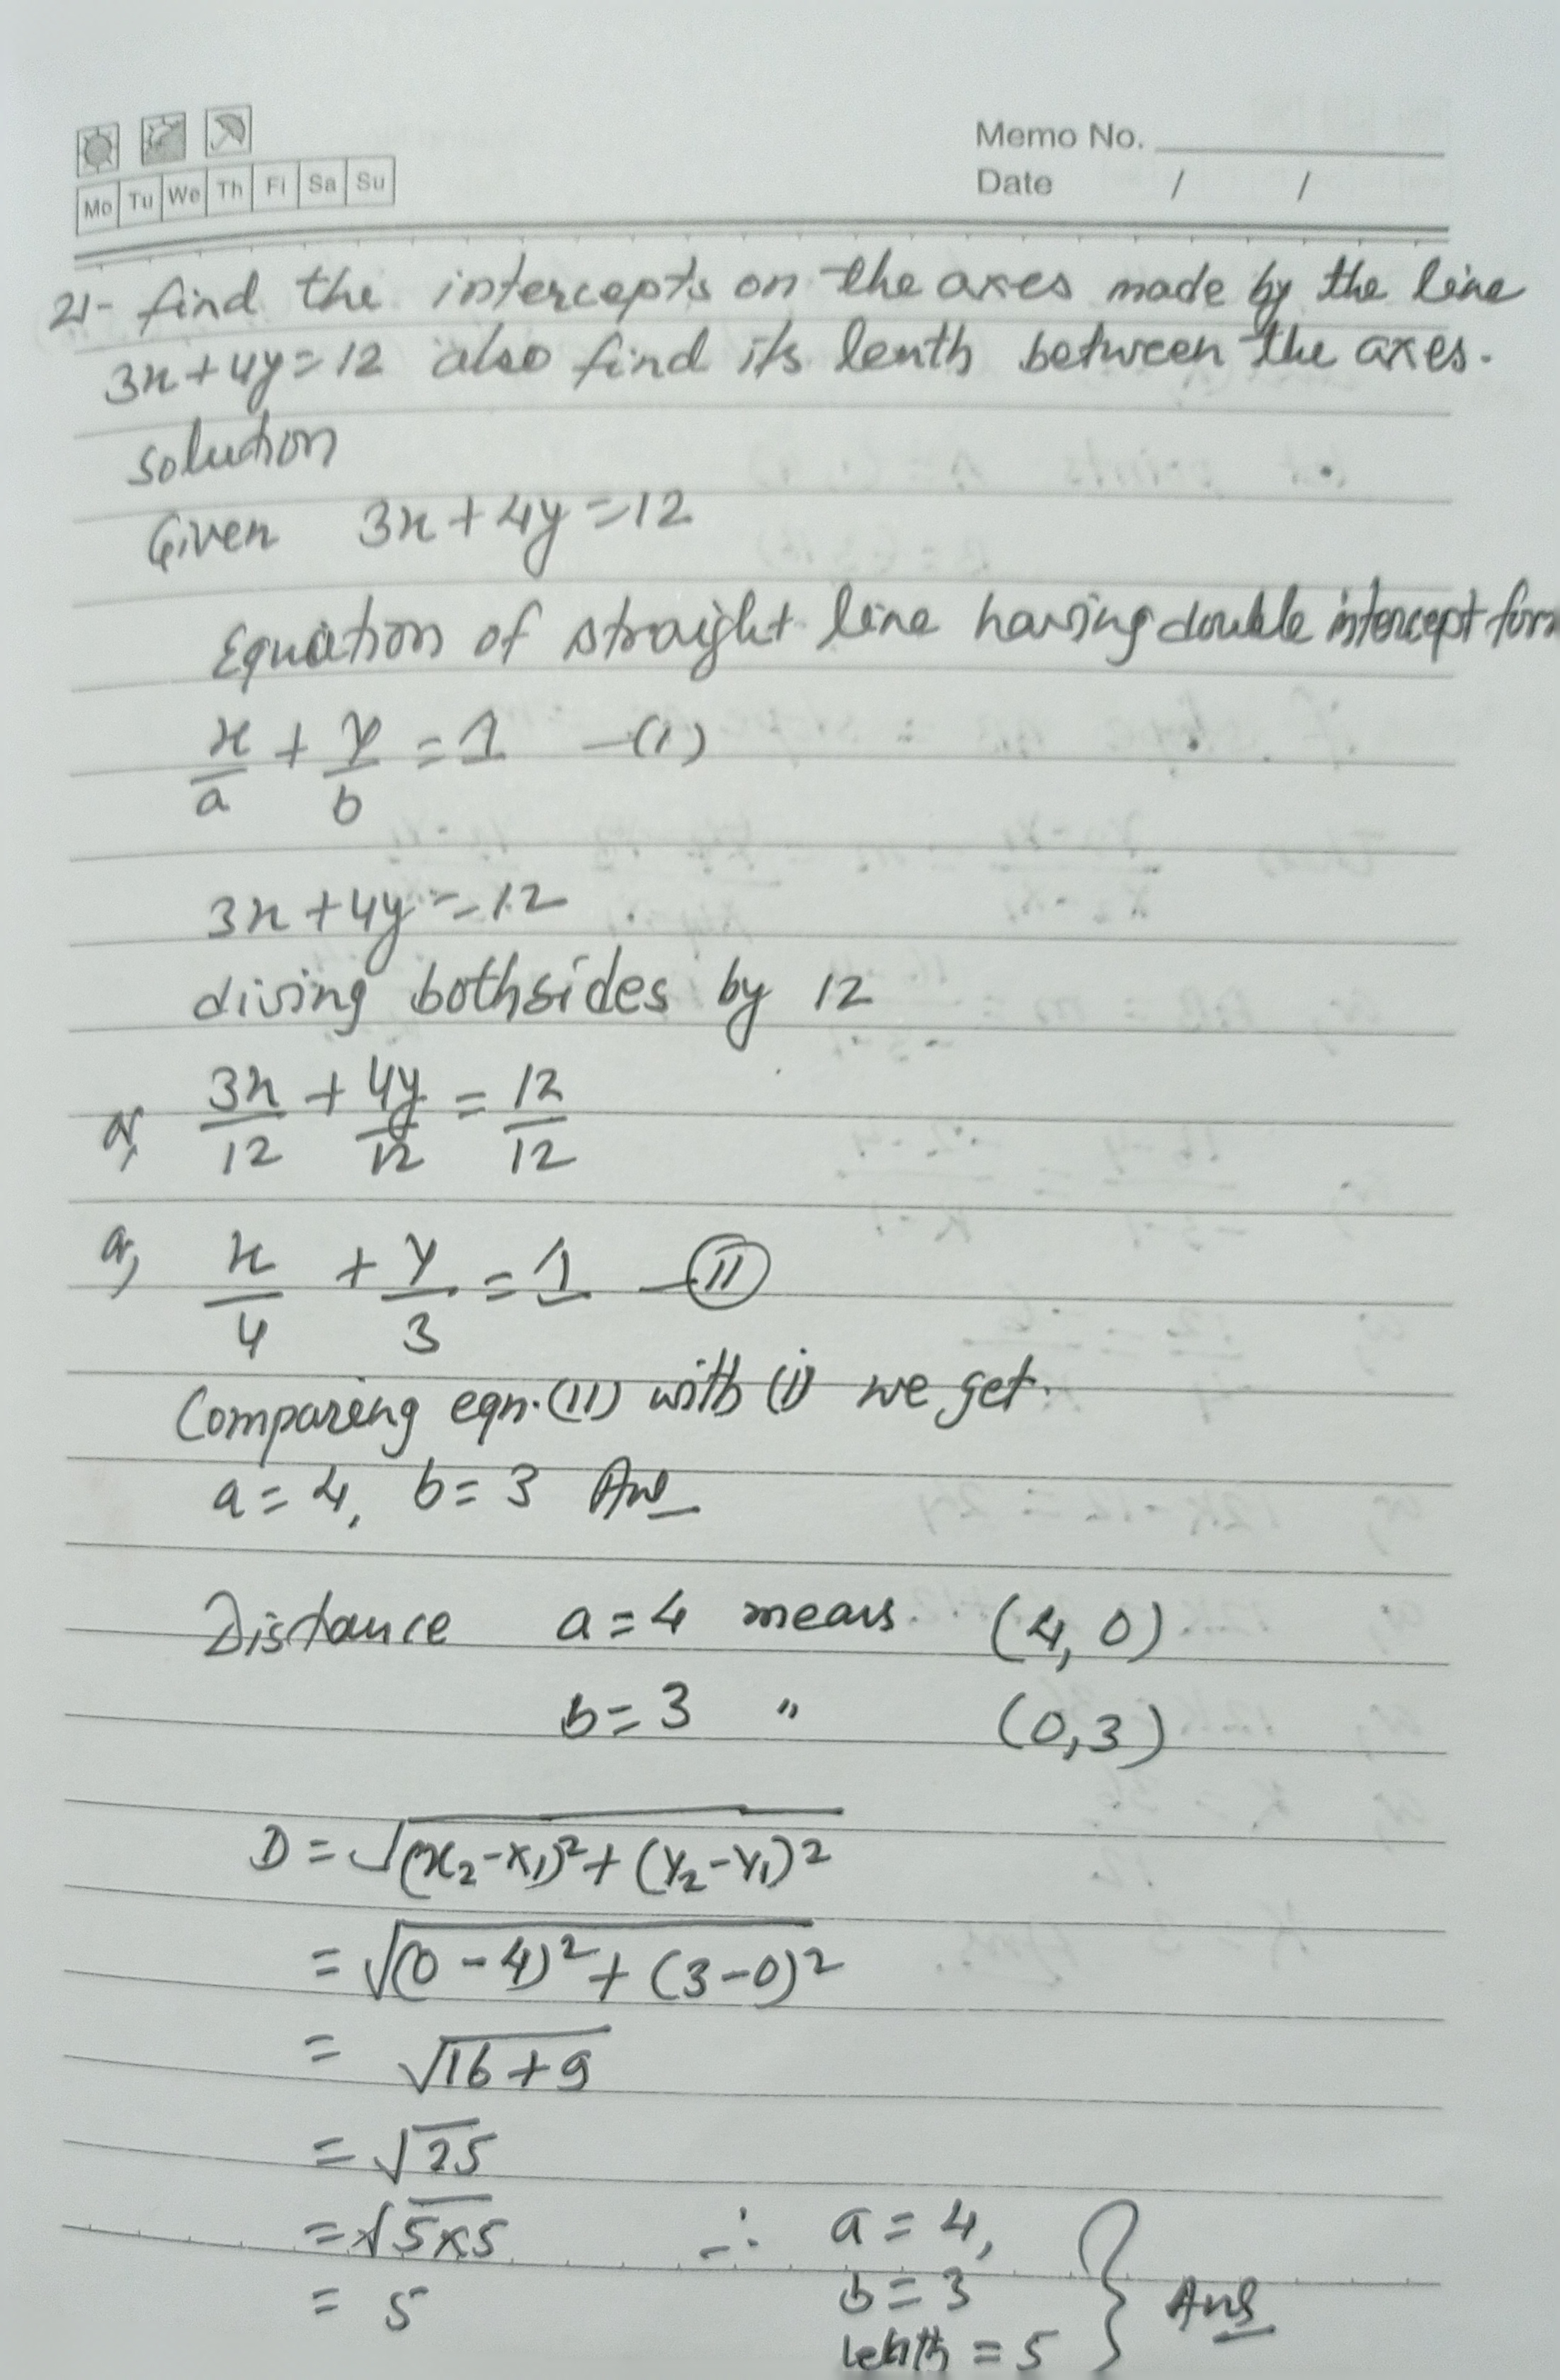 Memo No.
Mo Tu We Th Fi Sa Su
Date / /
21- find the intercepts on the axes made by the line
3x+4y=12 also find its lenth between the axes.
Solution
Given 3x+4y=12
Equation of straight line having double intercept form
x/a + y/b = 1 -(1)
3x+4y=12
diving bothsides by 12
or, 3x/12 + 4y/12 = 12/12
or, x/4 + y/3 = 1 -(II)
Comparing eqn.(II) with (i) we get.
a=4, b=3 Ans
Distance a=4 means (4,0)
b=3 " (0,3)
D=√(x₂-x₁)²+(y₂-y₁)²
=√(0-4)²+(3-0)²
= √16+9
=√25
=√5×5 ∴ a=4,
= 5 b=3 } Ans
lenth=5